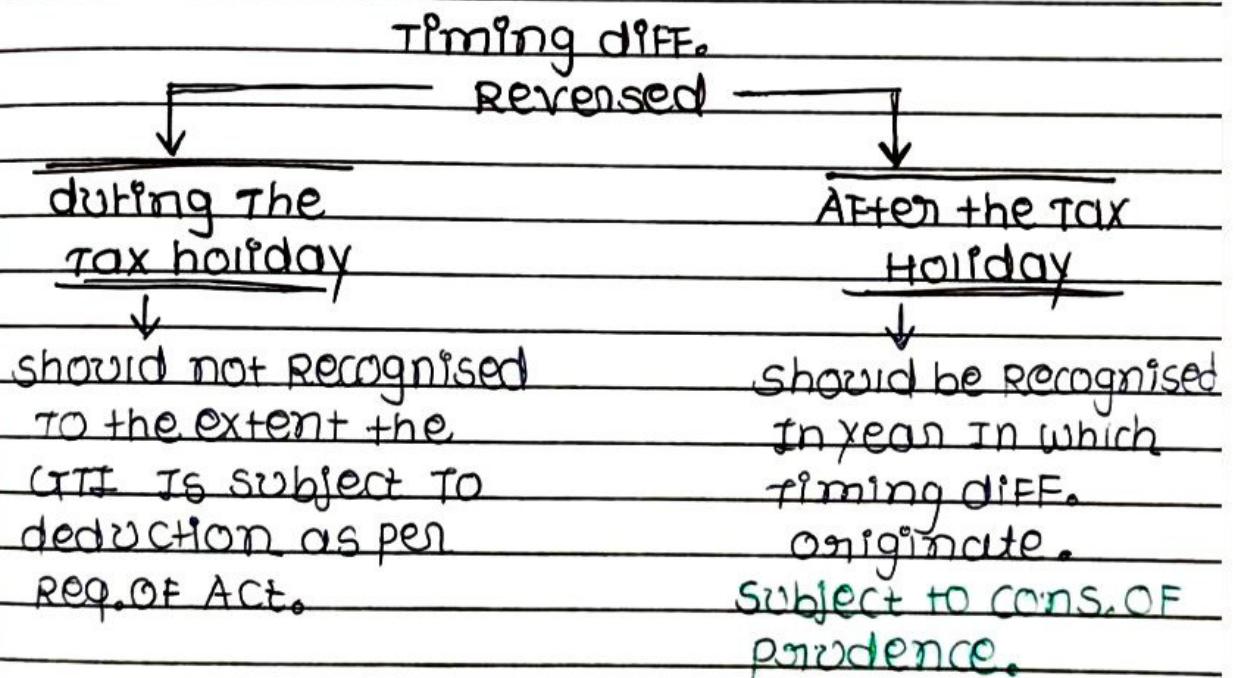 Timing diff.
Reversed
during The
Tax holiday
↓
should not Recognised
To the extent the
GTI Is subject To
deduction as per
Req. of Act.
After the Tax
Holiday
↓
should be Recognised
In year In which
Timing diff.
originate.
Subject to cons. of
prudence.